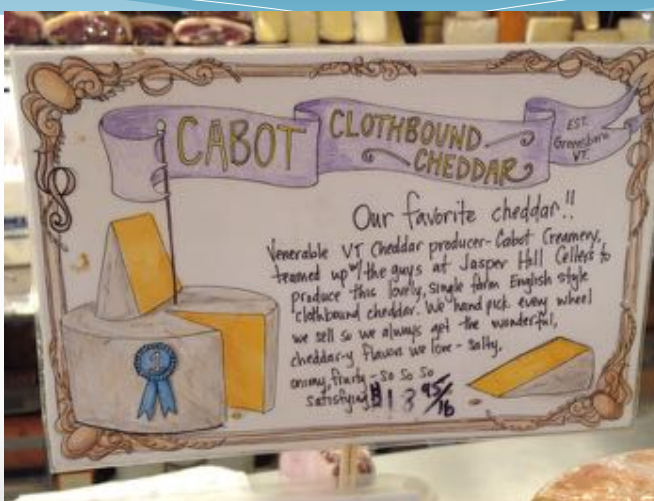 CABOT
CLOTHBOUND
CHEDDAR
EST.
Greensboro
VT.
Our favorite cheddar!!
Venerable VT cheddar producer - Cabot Creamery,
teamed up w/ the guys at Jasper Hill Cellers to
produce this lovely, single farm English style
clothbound cheddar. We hand pick every wheel
we sell so we always get the wonderful,
cheddar-y flavor we love - salty,
fruity - so so so
satisfying $18 95/lb
1